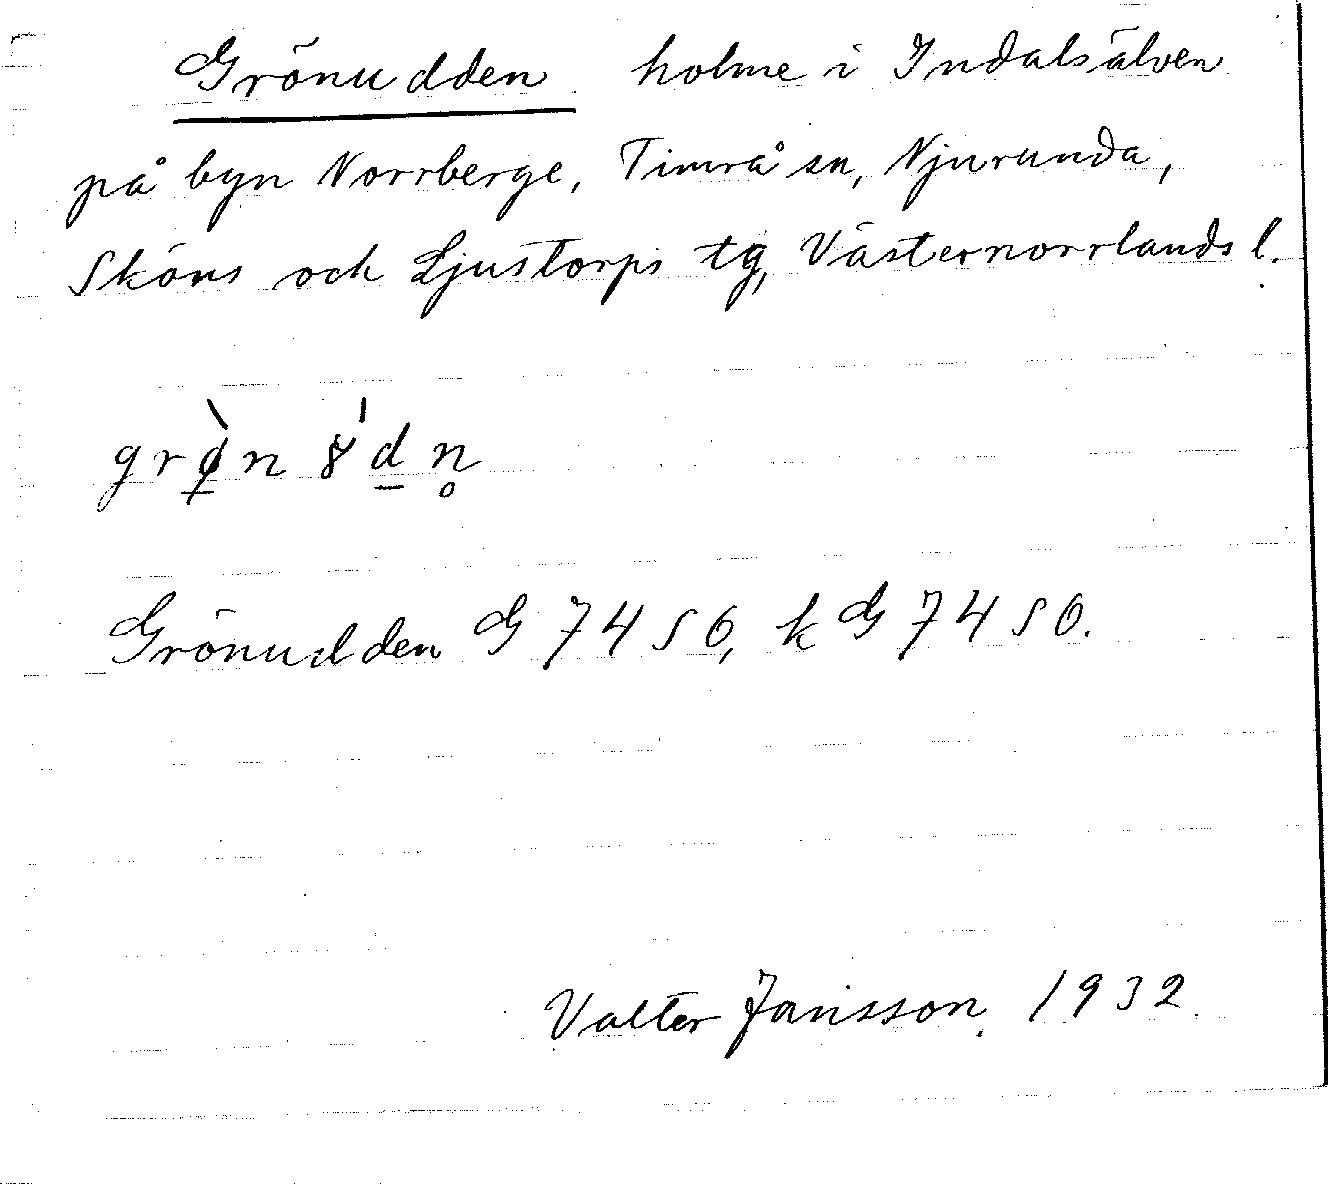 Grönudden holme i Indalsälven
på byn Norrberge, Timrå sn, Njurunda,
Sköns och Ljustorps tg, Västernorrlands l.
Grönudden G 7450, k G 7450.
Valter Jansson. 1932.